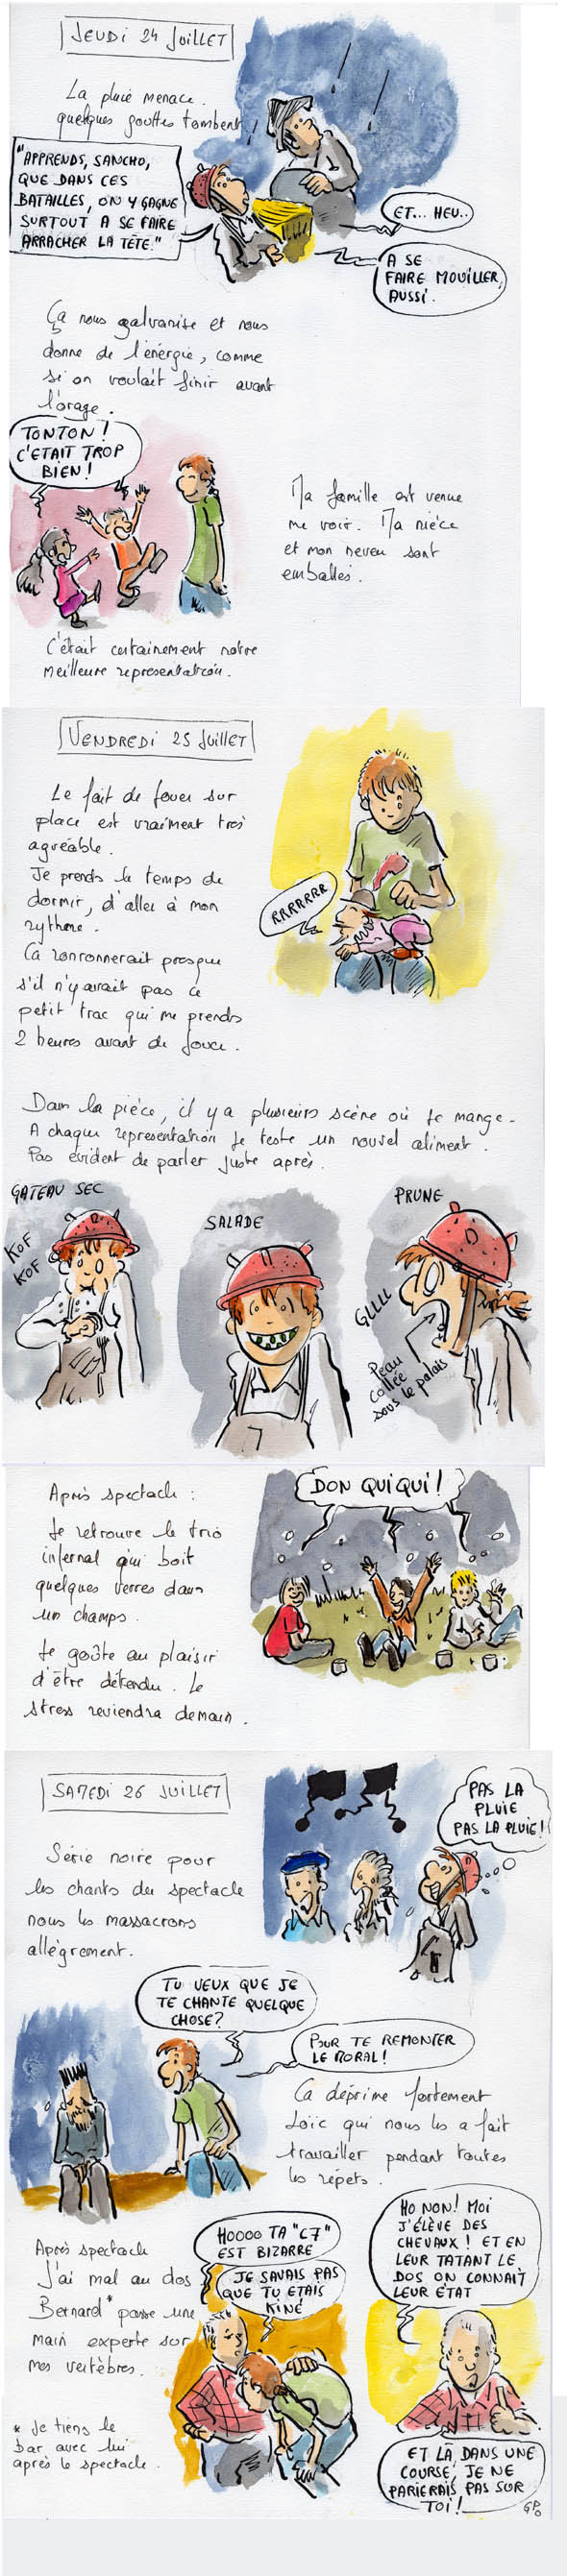 JEUDI 24 JUILLET
La pluie menace.
quelques gouttes tombent
"APPRENDS, SANCHO,
QUE DANS CES
BATAILLES, ON Y GAGNE
SURTOUT A SE FAIRE
ARRACHER LA TETE."
ET... HEU..
A SE
FAIRE MOUILLER,
AUSSI.
Ça nous galvanise et nous
donne de l'énergie, comme
si on voulait finir avant
l'orage.
TONTON!
C'ETAIT TROP
BIEN!
Ma famille est venue
me voir. Ma nièce
et mon neveu sont
emballés.
C'était certainement notre
meilleure representation.
VENDREDI 25 JUILLET
Le fait de jouer sur
place est vraiment très
agréable.
Je prends le temps de
dormir, d'aller à mon
rythme.
Ca ronronnerait presque
s'il n'y avait pas ce
petit trac qui me prends
2 heures avant de jouer.
RRRRRRR
Dans la pièce, il y a plusieurs scène où je mange.
A chaque representation je teste un nouvel aliment.
Pas évident de parler juste après.
GATEAU SEC
KOF
KOF
SALADE
PRUNE
GLLLL
Peau
collée
sous le palais
Après spectacle :
Je retrouve le trio
infernal qui boit
quelques verres dans
un champs.
Je goûte au plaisir
d'être détendu. Le
stress reviendra demain.
DON QUIQUI!
SAMEDI 26 JUILLET
Série noire pour
les chants du spectacle
nous les massacrons
allègrement.
PAS LA
PLUIE
PAS LA PLUIE!
TU VEUX QUE JE
TE CHANTE QUELQUE
CHOSE?
POUR TE REMONTER
LE MORAL!
Ca déprime fortement
Loïc qui nous les a fait
travailler pendant toutes
les répets.
Après spectacle
J'ai mal au dos
Bernard* passe une
main experte sur
mes vertèbres.
* Je tiens le
bar avec lui
après le spectacle.
HOOOO TA "C7"
EST BIZARRE
JE SAVAIS PAS
QUE TU ETAIS
KINÉ
HO NON! MOI
J'ÉLÈVE DES
CHEVAUX! ET EN
LEUR TATANT LE
DOS ON CONNAIT
LEUR ÉTAT
ET LÀ, DANS UNE
COURSE, JE NE
PARIERAIS PAS SUR
TOI!